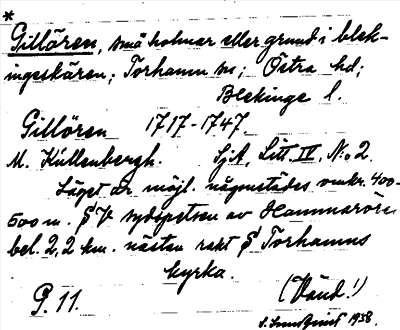 *
Gillören, små holmar eller grund i blek-
ingeskären; Torhamn sn; Östra hd;
Blekinge l.
Gillören 1717-1747.
M. Kullenbergh. SjA, Litt. IV, N:o 2.
Läget är möjl. någonstädes omkr. 400-
500 m. S V sydspetsen av Hammarön
bel. 2,2 km. nästan rakt S Torhamns
kyrka.
P. 11. (Vänd!)
1938.